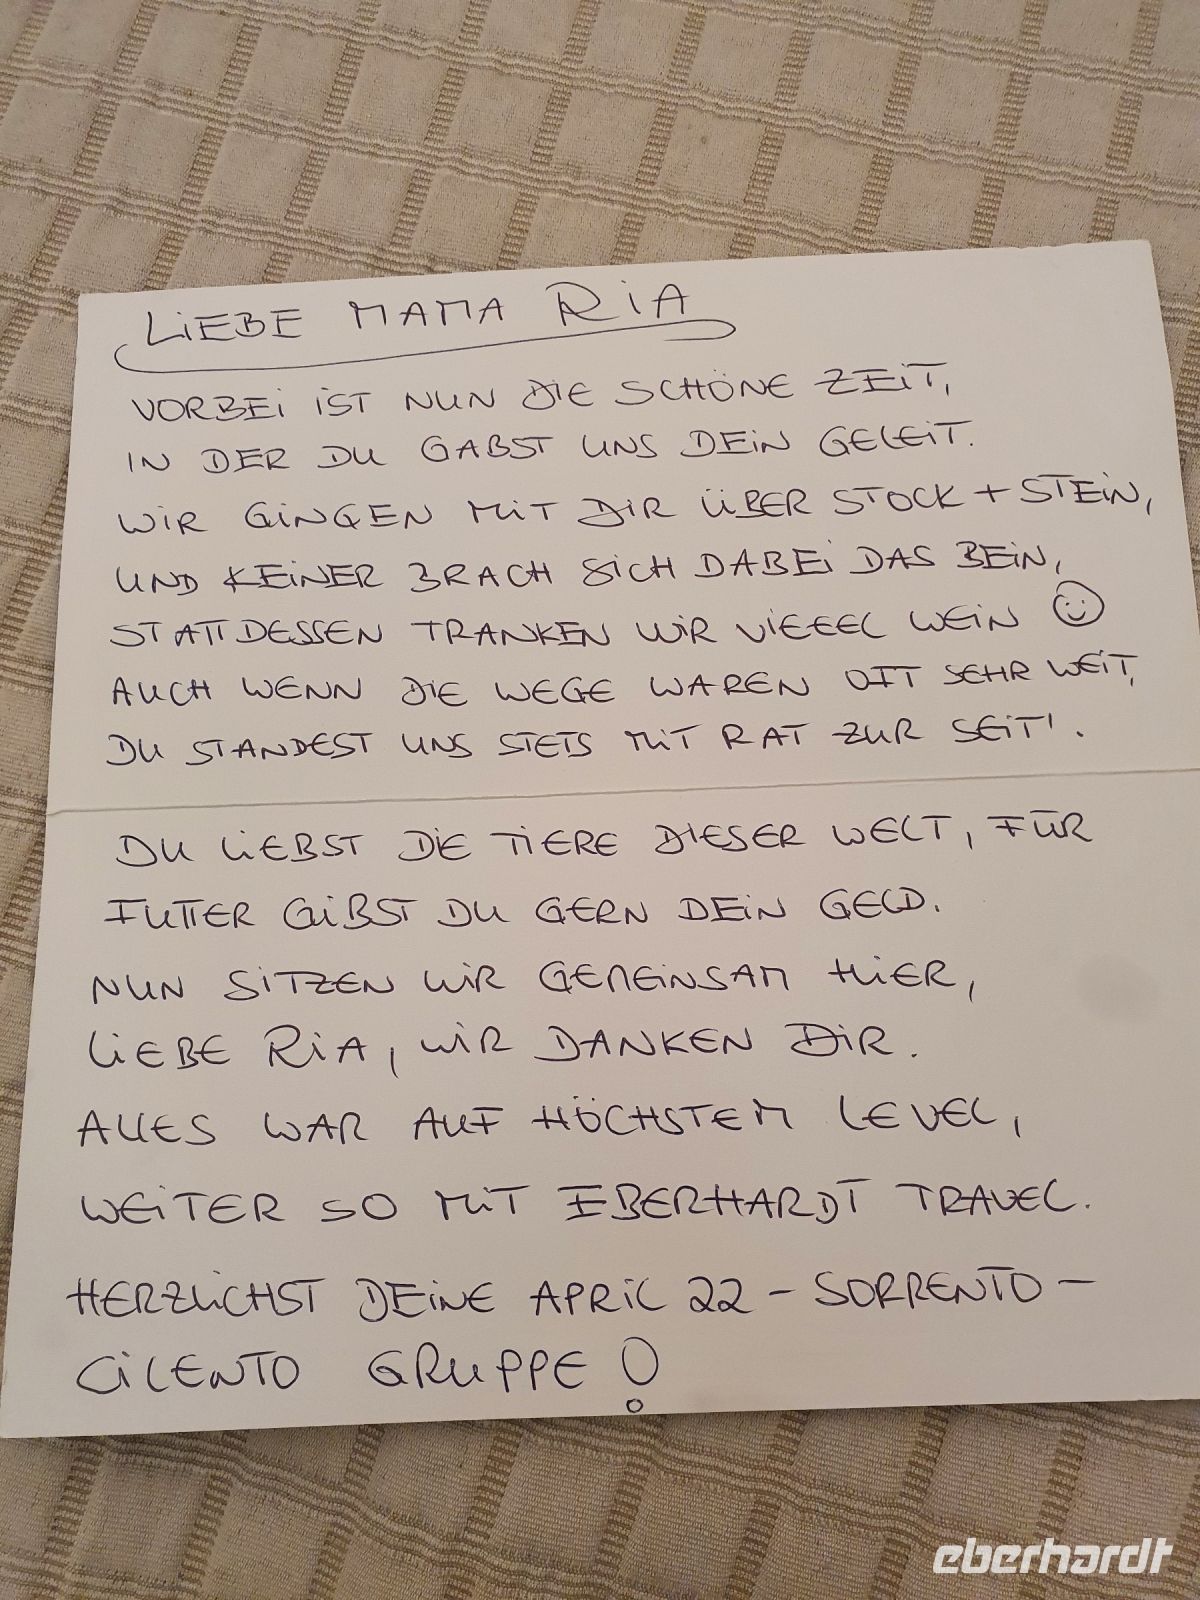 LiEBE MAMA RiA
VORBEi iST NUN DiE SCHÖNE ZEiT,
IN DER DU GABST UNS DEiN GELEiT.
WiR GiNGEN MiT DiR ÜBER STOCK + STEiN,
UND KEiNER BRACH SiCH DABEi DAS BEiN,
STATTDESSEN TRANKEN WiR ViEEEL WEiN ☺
AUCH WENN DiE WEGE WAREN OFT SEHR WEiT,
DU STANDEST UNS STETS MiT RAT ZUR SEiT'.
DU LiEBST DiE TiERE DiESER WELT, FÜR
FUTTER GiBST DU GERN DEiN GELD.
NUN SiTZEN WiR GEMEiNSAM HiER,
LiEBE RiA, WiR DANKEN DiR.
ALLES WAR AUF HÖCHSTEM LEVEL,
WEiTER SO MiT EBERHARDT TRAVEL.
HERZLiCHST DEiNE APRiL 22 - SORRENTO -
CiLENTO GRUPPE !
eberhardt